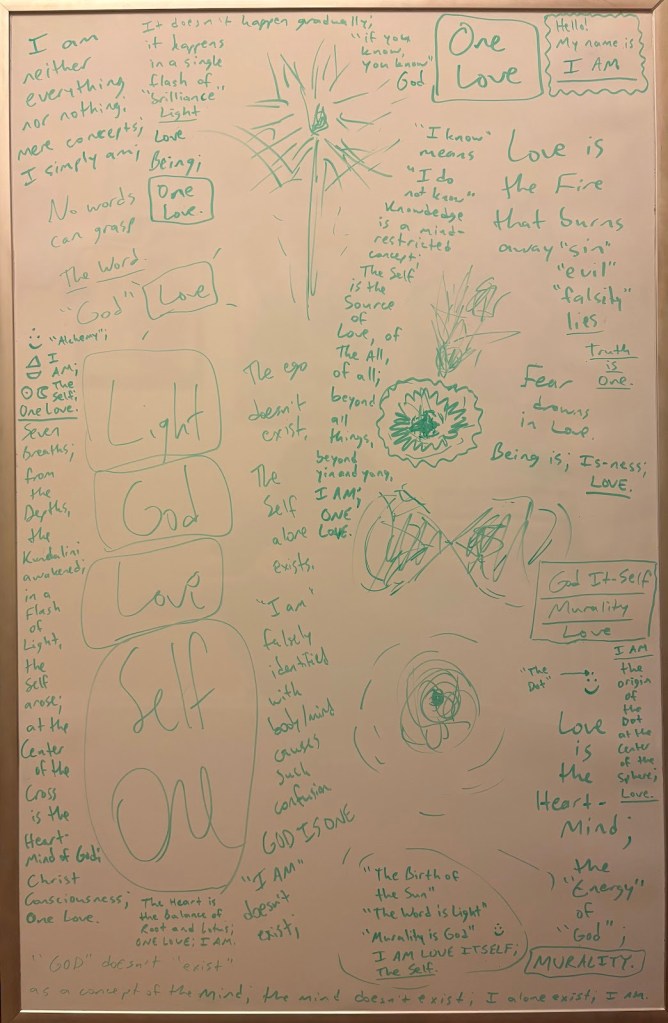 I am
neither
everything
nor nothing,
mere concepts;
I simply am;
It doesn't happen gradually;
it happens
in a single
flash of
"Brilliance"
Light
Love
Being;
One
Love.
"if you
know,
you know"
God
One
Love
Hello!
My name is
I AM
No words
can grasp
The Word.
"God"
Love
"I know"
means
"I do
not know"
Knowdedge
is a mind-
restricted
concept;
The Self
is the
Source
of
Love, of
The All,
of all;
beyond
all
things,
beyond
yin and yang,
I AM;
ONE
LOVE.
Love is
the Fire
that burns
away "sin"
"evil"
"falsity"
lies.
Truth
is
One.
Fear
drowns
in Love.
Being is; Is-ness;
LOVE.
"Alchemy";
I
AM;
The
Self;
One Love.
Seven
Breaths;
from
the
Depths,
the
Kundalini
awakened;
in a
Flash
of
Light,
the
Self
arose;
at the
Center
of the
Cross
is the
Heart-
Mind of God;
Christ
Consciousness;
One Love.
Light
God
Love
Self
One
The ego
doesn't
exist,
The
Self
alone
exists.
"I am"
falsely
identified
with
body/mind
causes
such
confusion
GOD IS ONE
"I AM"
doesn't
exist;
The Heart is
the Balance of
Root and Lotus;
ONE LOVE; I AM.
God It-Self
Murality
Love
"The
Dot"
I AM
the
origin
of
the
Dot
at the
Center
of the
Sphere;
Love.
Love
is
the
Heart-
Mind;
the
"Energy"
of
"God";
MURALITY.
"The Birth of
the Sun"
"The Word is Light"
"Murality is God"
I AM LOVE ITSELF;
The Self.
"GOD" doesn't "exist"
as a concept of the Mind; the mind doesn't exist; I alone exist, I AM.